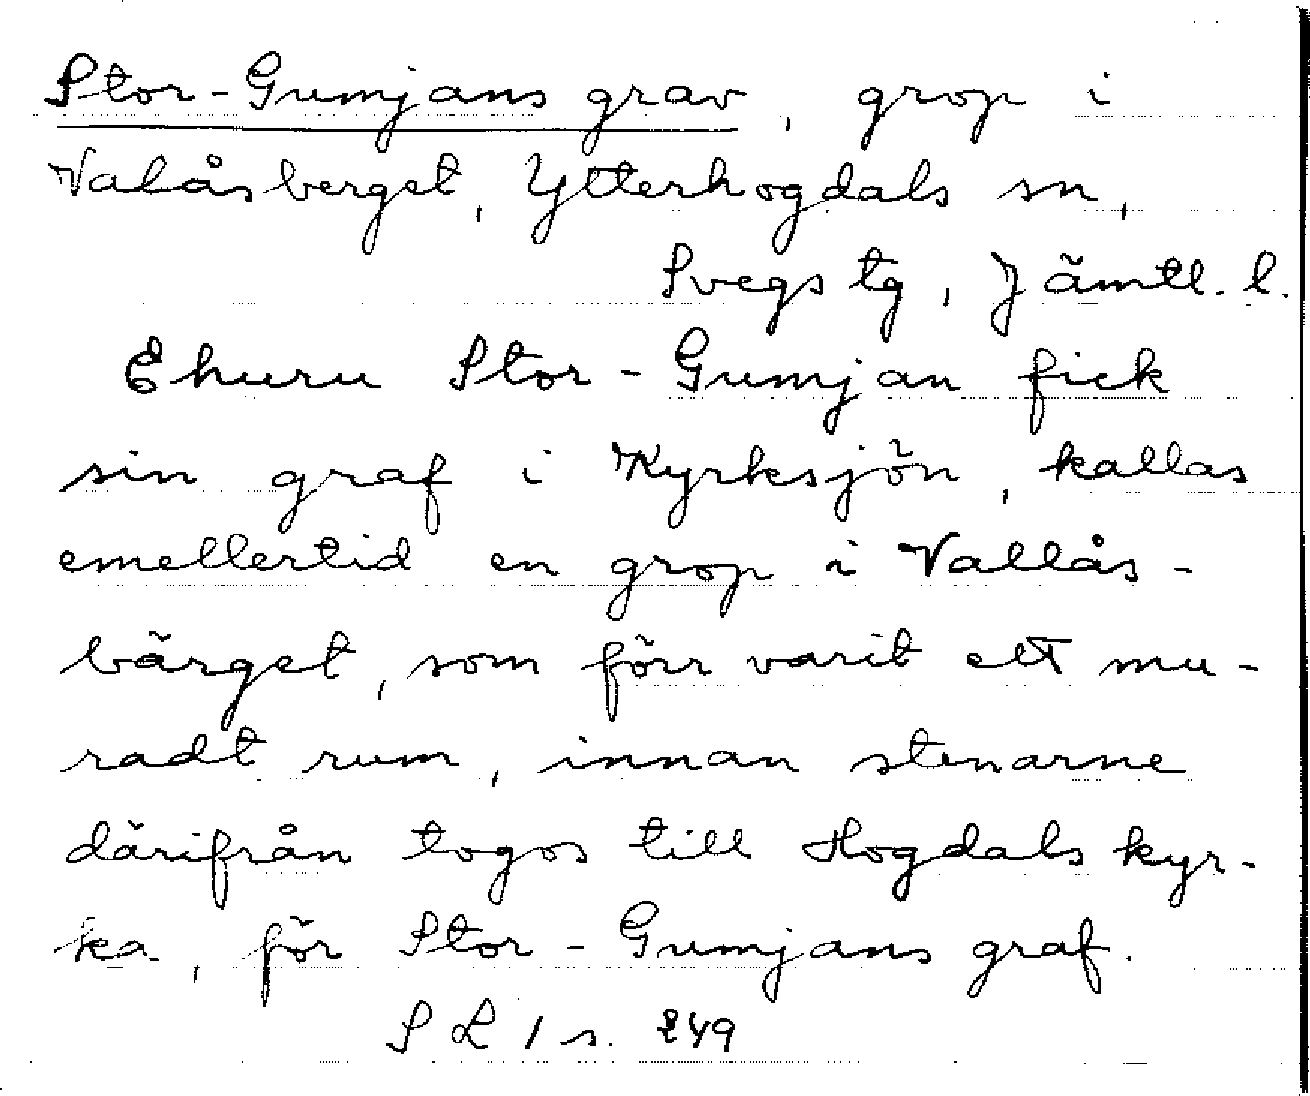 Stor-Gumjans grav, grop i
Valåsberget, Ytterhogdals sn,
Svegs tg, Jämtl. l.
Ehuru Stor-Gumjan fick
sin graf i Kyrksjön, kallas
emellertid en grop i Vallås-
bärget, som förr varit ett mu-
radt rum, innan stenarne
därifrån togos till Hogdals kyr-
ka, för Stor-Gumjans graf.
S L 1 s. 249